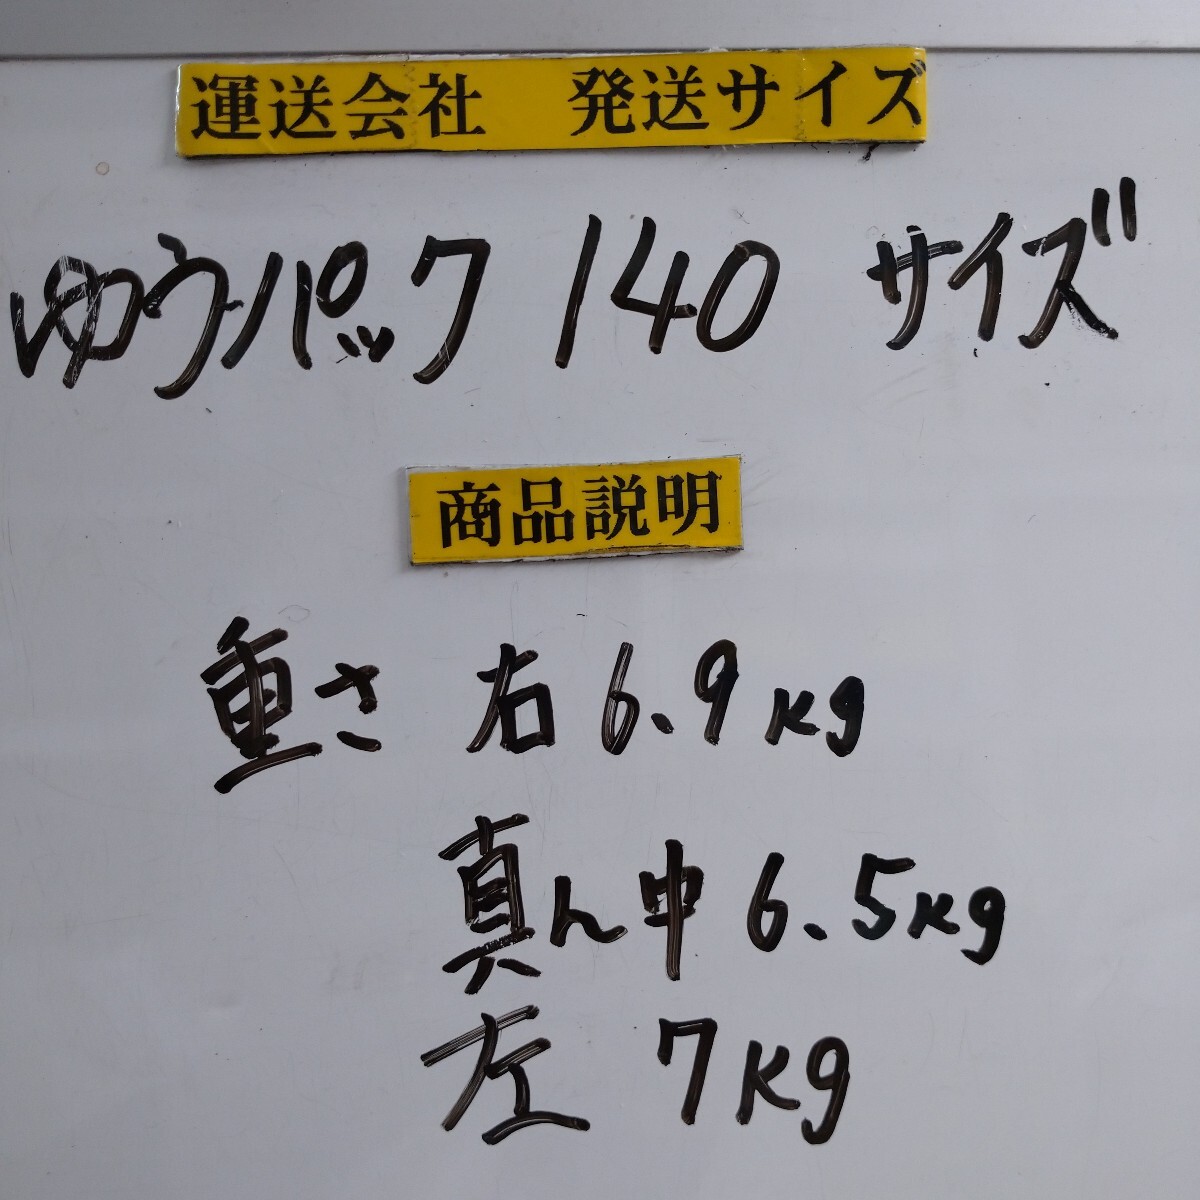 運送会社　発送サイズ
ゆうパック 140 サイズ
商品説明
重さ 右 6.9kg
真ん中 6.5kg
左 7kg